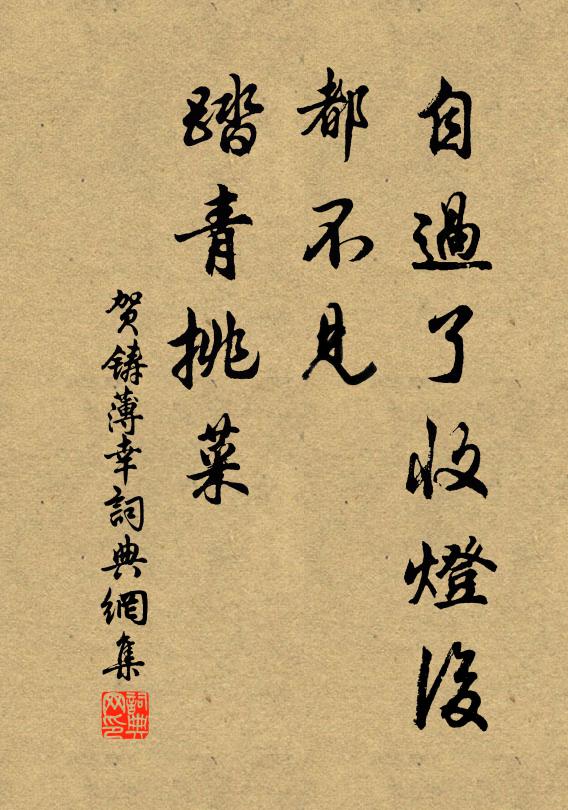 自過了收燈後
都不見
踏青挑菜
贺鑄薄幸詞典網集
詞典
网印